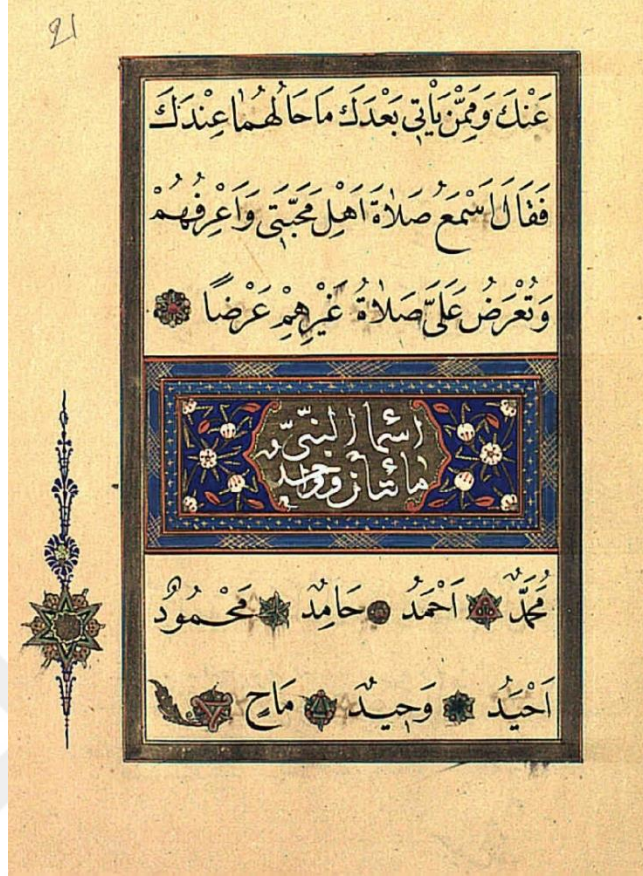 21
عَنْكَ وَمِمَّنْ يَاْتِى بَعْدَكَ مَا حَالُهُمَا عِنْدَكَ
فَقَالَ اَسْمَعُ صَلَاةَ اَهْلِ مَحَبَّتِى وَاَعْرِفُهُمْ
وَتُعْرَضُ عَلَىَّ صَلَاةُ غَيْرِهِمْ عَرْضًا
اسْمَاُ النَّبِىِّ
مِائَتَانِ وَوَاحِدٌ
مُحَمَّدٌ اَحْمَدُ حَامِدٌ مَحْمُودٌ
اَحْيَدُ وَحِيدٌ مَاحٍ